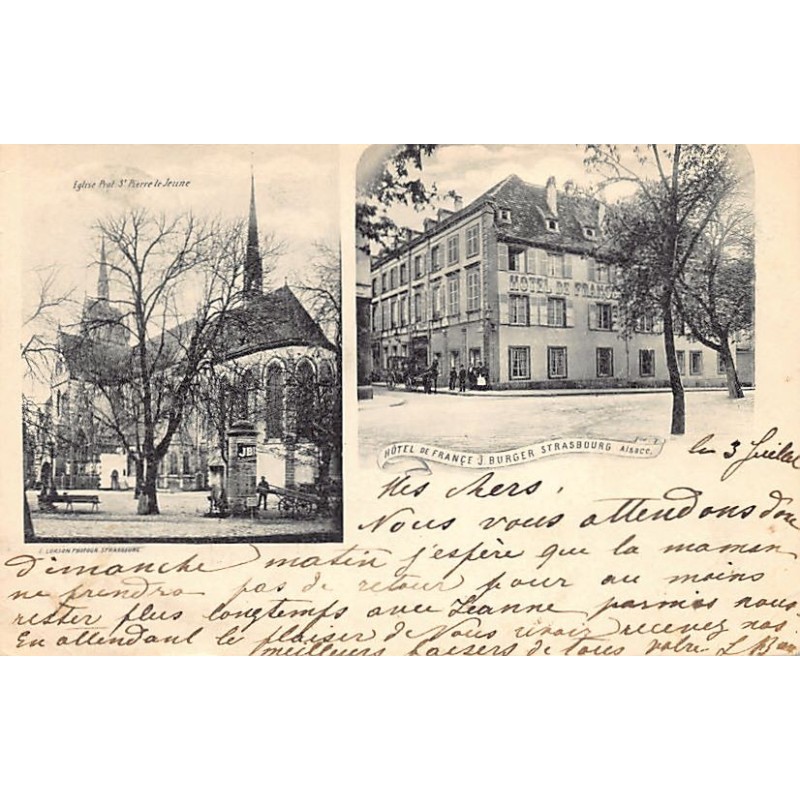 Eglise Prot. St Pierre le Jeune
HOTEL DE FRANCE
JB
E. LORSON PHOTOGR. STRASBOURG
HÔTEL DE FRANCE J. BURGER STRASBOURG ALSACE.
le 3 Juillet
Mes chers,
Nous vous attendons donc
Dimanche matin j'espère que la maman
ne prendra pas de retour pour au moins
rester plus longtemps avec Jeanne parmis nous
En attendant le plaisir de Vous revoir recevez nos
meilleurs baisers de tous votre